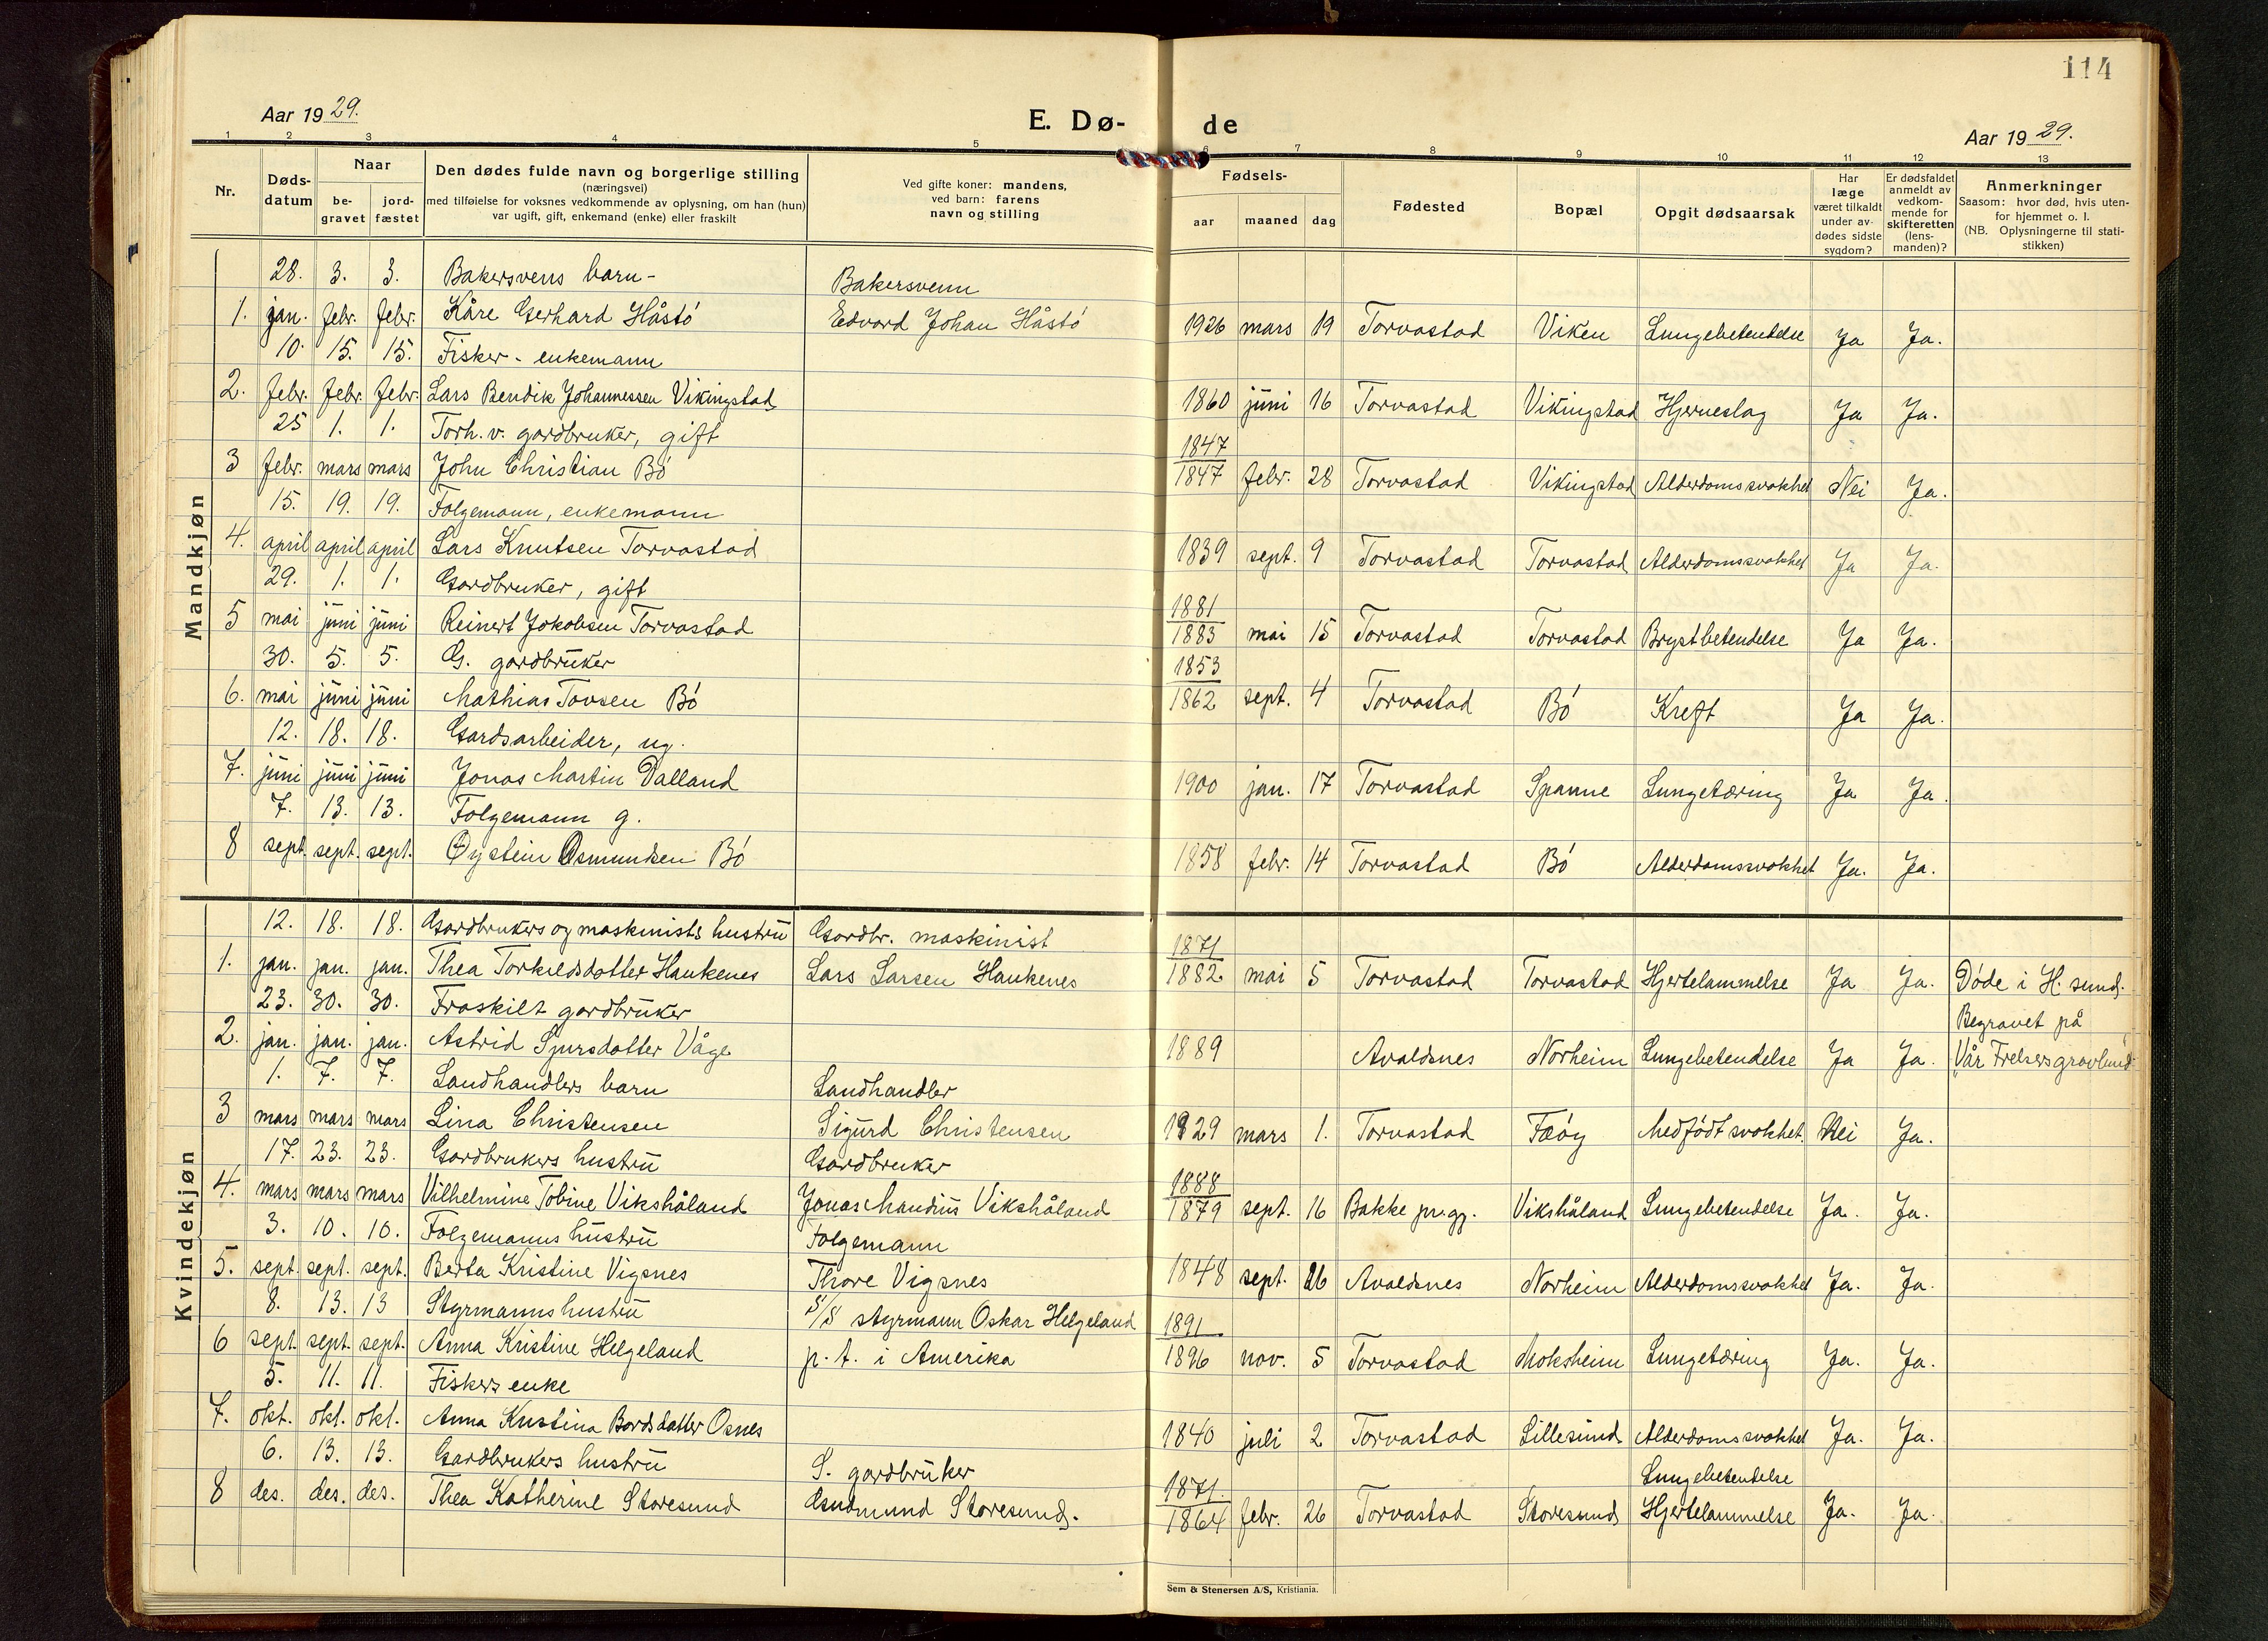 114
Aar 1929.
E. Dø-
de
Aar 1929.
1 2 3 4 5 6 7 8 9 10 11 12 13
Nr.
Døds-
datum
Naar
be-
gravet
jord-
fæstet
Den dødes fulde navn og borgerlige stilling
(næringsvei)
med tilføielse for voksnes vedkommende av oplysning, om han (hun)
var ugift, gift, enkemand (enke) eller fraskilt
Ved gifte koner: mandens,
ved barn: farens
navn og stilling
Fødsels-
aar maaned dag
Fødested
Bopæl
Opgit dødsaarsak
Har
læge
været tilkaldt
under av-
dødes sidste
sygdom?
Er dødsfaldet
anmeldt av
vedkom-
mende for
skifteretten
(lens-
manden)?
Anmerkninger
Saasom: hvor død, hvis uten-
for hjemmet o. l.
(NB. Oplysningerne til stati-
stikken)
Mandkjøn
28. 3. 3. Bakersvens barn - Bakersvenn
1. jan. febr. febr. Kåre Gerhard Håstó Edvard Johan Håstó 1926 mars 19 Torvastad Viken Lungebetendelse Ja Ja.
10. 15. 15. Fisker - enkemann
2. febr. febr. febr. Lars Bendik Johannessen Vikingstad 1860 juni 16 Torvastad Vikingstad Hjerneslag Ja Ja.
25 1. 1. Torh. v. gardbruker, gift 1847
3 febr. mars mars John Christian Bó 1847 febr. 28 Torvastad Vikingstad Alderdomssvakhet Nei Ja.
15. 19. 19. Folgemann, enkemann
4. april april april Lars Knutsen Torvastad 1839 sept. 9 Torvastad Torvastad Alderdomssvakhet Ja Ja.
29. 1. 1. Gardbruker, gift 1881
5 mai juni juni Reinert Jakobsen Torvastad 1883 mai 15 Torvastad Torvastad Brystbetendelse Ja Ja.
30. 5. 5. G. gardbruker 1853
6. mai juni juni Mathias Tovsen Bó 1862 sept. 4 Torvastad Bó Kreft Ja Ja.
12. 18. 18. Gardsarbeider, ug.
7. juni juni juni Jonas Martin Dalland 1900 jan. 17 Torvastad Spanne Lungetæring Ja Ja.
7. 13. 13. Folgemann g.
8 sept. sept. sept. Øystein Osmundsen Bó 1858 febr. 14 Torvastad Bó Alderdomssvakhet Ja. Ja.
Kvindekjøn
12. 18. 18. Gardbrukers og maskinists hustru Gardbr. maskinist 1871
1. jan. jan. jan. Thea Torkildsdotter Haukenes Lars Larsen Haukenes 1882 mai 5 Torvastad Torvastad Hjertelammelse Ja Ja. Døde i H. sund.
23. 30. 30. Fraskilt gardbruker Begravet på
2. jan. jan. jan. Astrid Sjursdatter Våge 1889 Avaldsnes Norheim Lungebetendelse Ja Ja. Vår Frelsers gravlund
1. 7. 7. Landhandlers barn Landhandler
3 mars mars mars Lina Christensen Sigurd Christensen 1929 mars 1. Torvastad Fæóy Medfödt svakhet. Nei Ja.
17. 23. 23. Gardbrukers hustru Gardbruker 1888
4. mars mars mars Vilhelmine Tobine Vikshåland Jonas Mandius Vikshåland 1879 sept. 16 Bakke pr.gj. Vikshåland Lungebetendelse Ja. Ja.
3. 10. 10. Folgemanns hustru Folgemann
5. sept. sept. sept. Berta Kristine Vigsnes Thore Vigsnes 1848 sept. 26 Avaldsnes Norheim Alderdomssvakhet Ja. Ja.
8. 13. 13 Styrmanns hustru S/S styrmann Oskar Helgeland 1891
6 sept. sept. sept. Anna Kristine Helgeland p. t. i Amerika 1896 nov. 5 Torvastad Moksheim Lungetæring Ja. Ja.
5. 11. 11. Fiskers enke
7. okt. okt. okt. Anna Kristina Bordsdatter Osnes 1840 juli 2 Torvastad Lillesund Alderdomssvakhet Ja. Ja.
6. 13. 13. Gardbrukers hustru S. gardbruker 1871. Lungebetendelse
8 des. des. des. Thea Katherine Storesund Gudmund Storesund. 1864 febr. 26 Torvastad Storesund Hjertelammelse Ja. Ja.
Sem & Stenersen A/S, Kristiania.